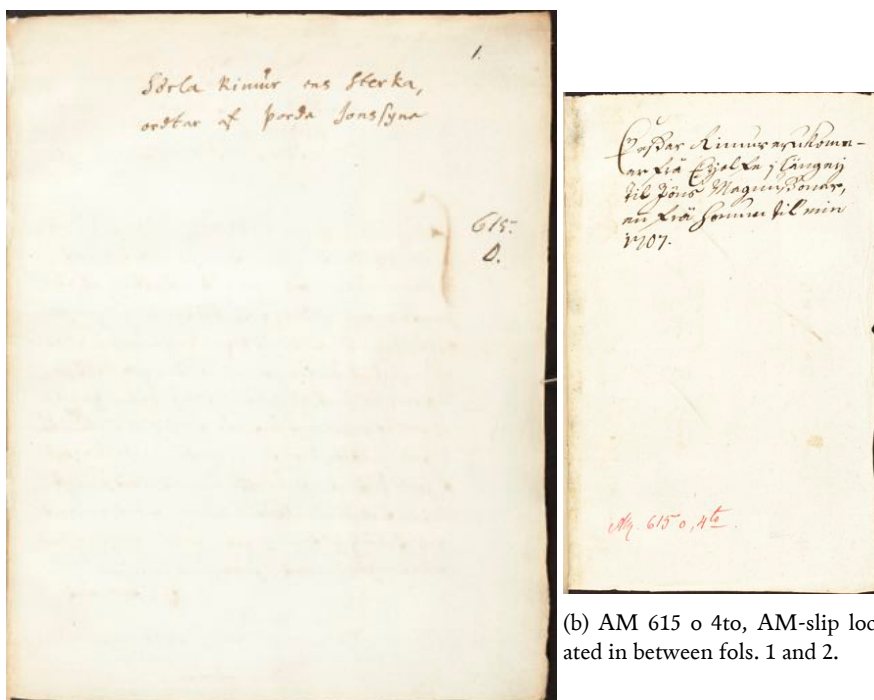 1.
Sørla Rimur ens Sterka,
ordtar af þorda Jonssyne
615.
O.
Þessar Rimur eru komn-
ar frä Eyjolfe j Längeÿ
til Jöns Magnussonar,
en frä honum til min
1707.
AM 615 o, 4to.
(b) AM 615 o 4to, AM-slip loc
ated in between fols. 1 and 2.